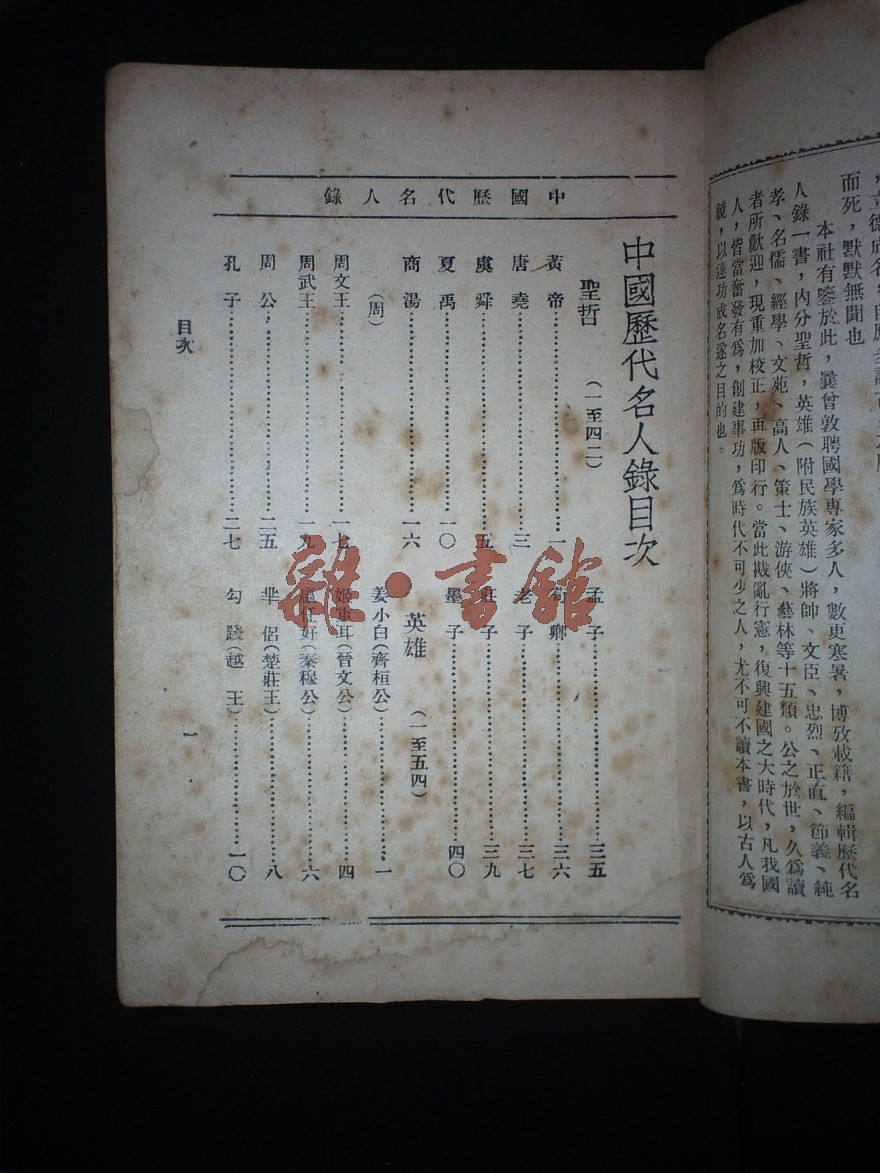 ，立德成名，
而死，默默無聞也
本社有鑒於此，曩曾敦聘國學專家多人，數更寒暑，博攷載籍，編輯歷代名
人錄一書，內分聖哲，英雄（附民族英雄）將帥、文臣、忠烈、正直、節義、純
孝、名儒、經學、文苑、高人、策士、游俠、藝林等十五類。公之於世，久爲讀
者所歡迎，現重加校正，再版印行。當此戡亂行憲，復興建國之大時代，凡我國
人，皆當奮發有爲，創建事功，爲時代不可少之人，尤不可不讀本書，以古人爲
鏡，以達功成名遂之目的也。
中國歷代名人錄
中國歷代名人錄目次
聖哲（一至四二）
黃帝……一
唐堯……三
虞舜……五
夏禹……一〇
商湯……一六
（周）
周文王……一七
周武王……一九
周公……二五
孔子……二七
孟子……三五
荀卿……三六
老子……三七
莊子……三九
墨子……四〇
英雄（一至五四）
姜小白（齊桓公）……一
姬重耳（晉文公）……四
嬴任好（秦穆公）……六
羋侶（楚莊王）……八
勾踐（越王）……一〇
目次
一
雜·書館